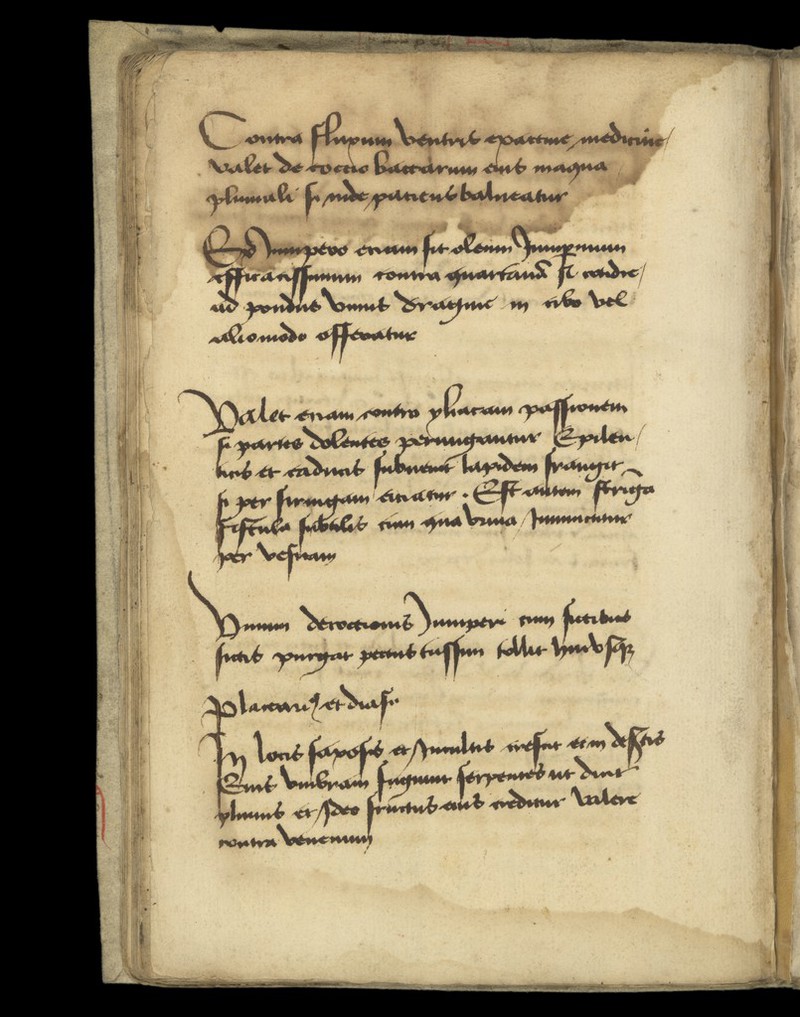 Contra fluxum ventris ex acumine medicine
valet decoccio baccarum eius in aqua
pluuiali si inde paciens balneatur
Ex Junipero eciam fit oleum Juniperinum
efficacissimum contra quartanã si cotidie
ad pondus vnius dragme in cibo vel
alio modo offeratur
Valet eciam contra yliacam passionem
si partes dolentes perungantur Epilen
ticis et caducis subuenit lapidem frangit
si per siringam iniciatur . Est autem siringa
fistula subtilis cum qua vrina Inmittitur
per vesicam
Vinum decoctionis Juniperi cum ficubus
siccis purgat pectus tussim tollit huiusque
Platearius et diasc
In locis saxosis et Incultis crescit et in desertis
Eius vmbram fugiunt serpentes ut dicit
plinius et Ideo fructus eius creditur valere
contra venenum